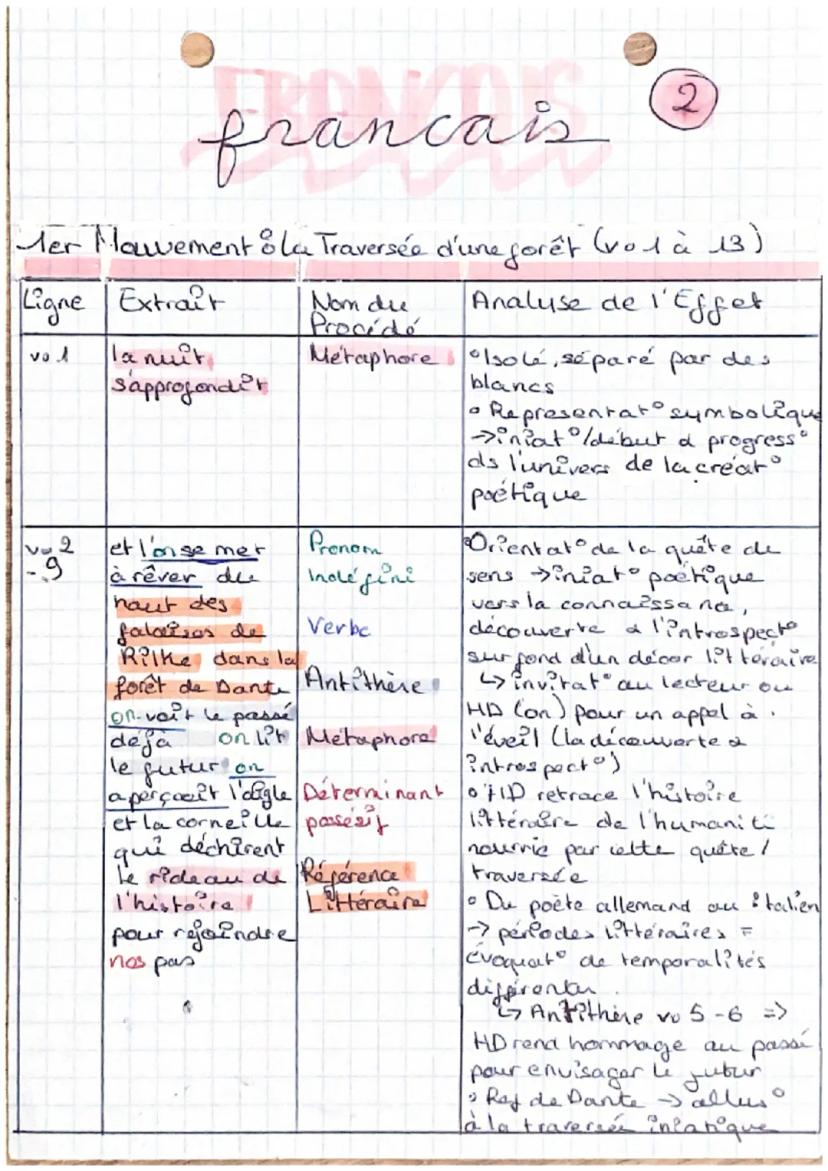 FRANCAIS
francais
2
1er Mouvement : la Traversée d'une forêt (vo 1 à 13)
Ligne
Extrait
Nom du
Procédé
Analyse de l'Effet
vo 1
la nuit
s'approfondit
Métaphore
° Isolé, séparé par des
blancs
° Representat° symbolique
→ iniat°/début d progress°
ds l'univers de la créat°
poétique
vo 2
- 9
et l'on se met
à rêver du
haut des
falaises de
Rilke dans la
forêt de Dante
on voit le passé
déjà on lit
le futur on
aperçoit l'aigle
et la corneille
qui déchirent
le rideau de
l'histoire
pour rejoindre
nos pas
Pronom
Indéfini
Verbe
Antithèse
Métaphore
Déterminant
possésif
Référence
Littéraire
° Orientat° de la quête de
sens → iniat° poétique
vers la connaissance,
découverte & l'introspect°
sur fond d'un décor littéraire
↳ invitat° au lecteur ou
HD (on) pour un appel à
l'éveil (la découverte &
introspect°)
° HD retrace l'histoire
littéraire de l'humanité
nourrie par cette quête /
traversée
° Du poète allemand au italien
→ périodes littéraires =
évoquat° de temporalités
différentes.
↳ Antithèse vo 5-6 =>
HD rend hommage au passé
pour envisager le futur
° Ref de Dante → allus°
à la traversée iniatique